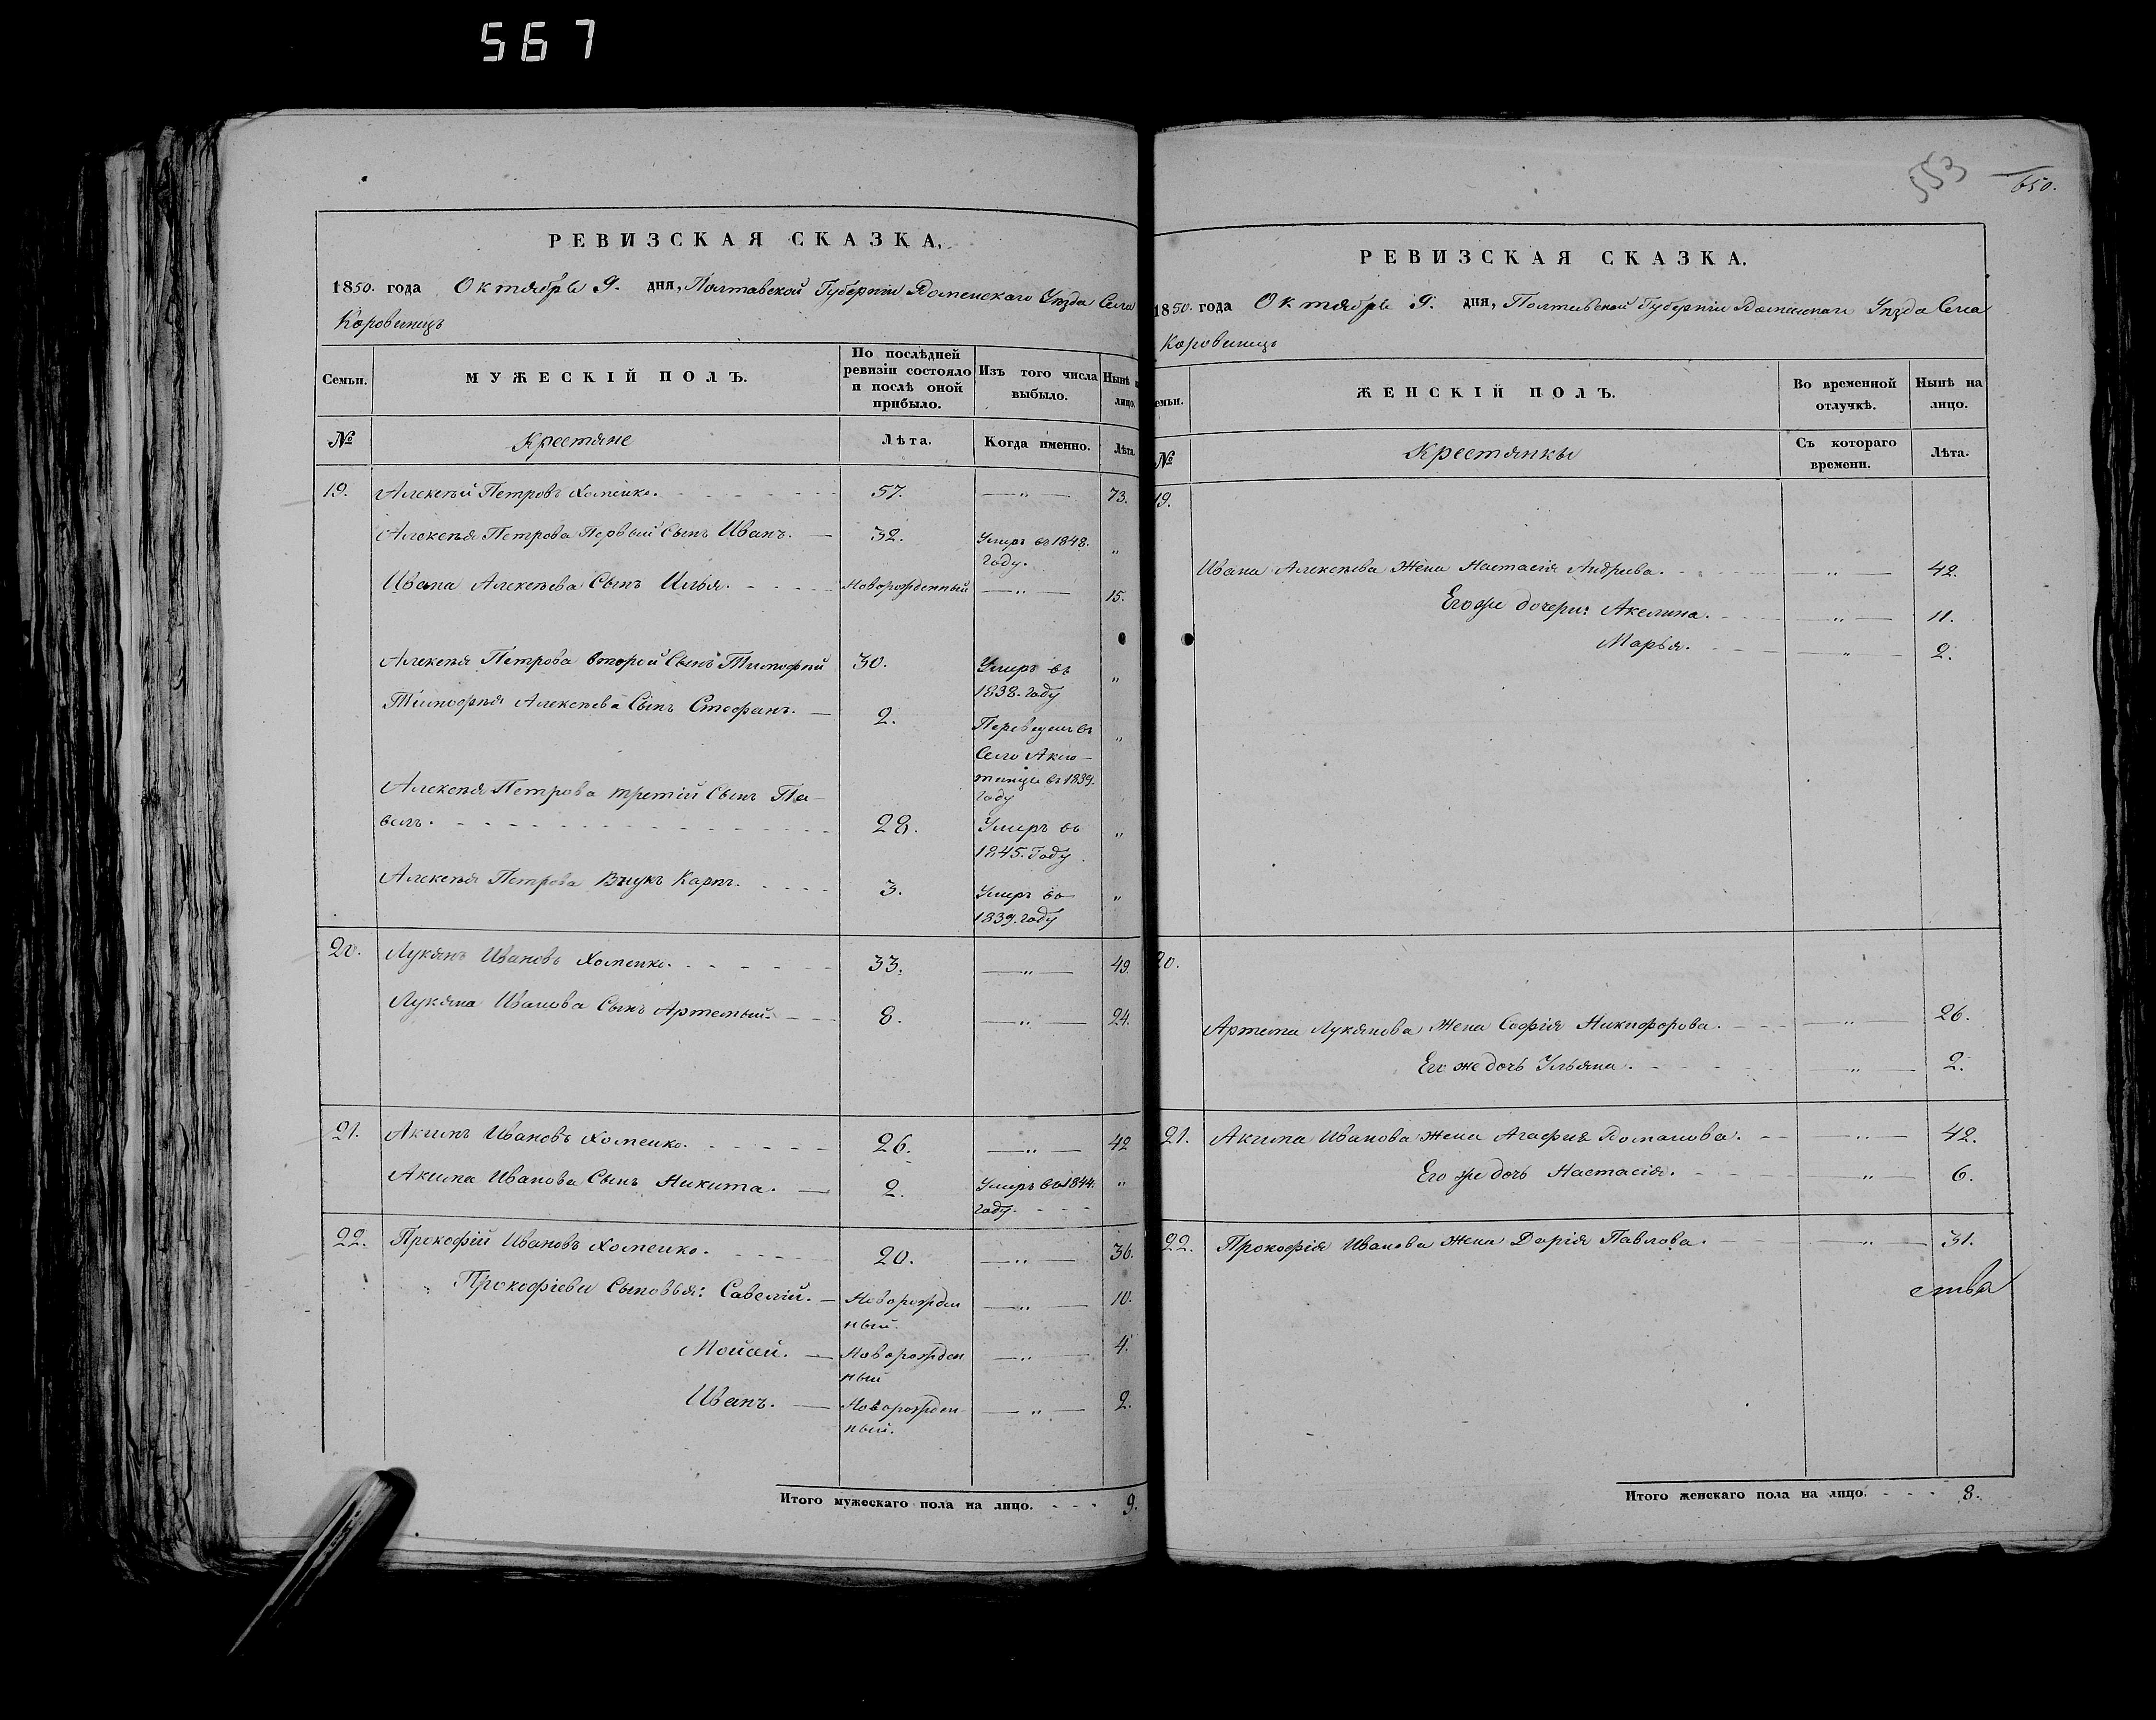 567
РЕВИЗСКАЯ СКАЗКА.
1850. года Октября 9. дня, Полтавской Губерніи Роменскаго Уѣзда Села
Коровинецъ
Семьи. МУЖЕСКІЙ ПОЛЪ. По послѣдней ревизіи состояло и послѣ оной прибыло. Изъ того числа выбыло. Нынѣ на лицо.
№ Крестяне Лѣта. Когда именно. Лѣта.
19. Алексѣй Петровъ Хоменко. 57. — „ — 73.
Алексѣя Петрова Первый Сынъ Иванъ. — 32. Умеръ въ 1848. году. „
Ивана Алексѣева Сынъ Илья. Новорожденный — „ — 15.
Алексѣя Петрова второй Сынъ Тимофѣй 30. Умеръ въ 1838. году „
Тимофѣя Алексѣева Сынъ Стефанъ. — 2. Переведенъ въ Село Аксютинцы въ 1839. году „
Алексѣя Петрова третій Сынъ Па-
велъ. 28. Умеръ въ 1845. Году. „
Алексѣя Петрова Внукъ Карпъ. 3. Умеръ въ 1839. году „
20. Лукянъ Ивановъ Хоменко. 33. — „ — 49.
Лукяна Иванова Сынъ Артемый. 8. — „ — 24.
21. Акимъ Ивановъ Хоменко. 26. — „ — 42
Акима Иванова Сынъ Никита. — 2. Умеръ въ 1844. году. „
22. Прокофій Ивановъ Хоменко. 20. — „ — 36.
Прокофіевы Сыновья: Савелій. — Новорожденный. — „ — 10.
Мойсей. — Новорожденный — „ — 4.
Иванъ. — Новорожденный. — „ — 2.
Итого мужескаго пола на лицо. 9.
553
650.
РЕВИЗСКАЯ СКАЗКА.
1850. года Октября 9. дня, Полтавской Губерніи Роменскаго Уѣзда Села
Коровинецъ
Семьи. ЖЕНСКІЙ ПОЛЪ. Во временной отлучкѣ. Нынѣ на лицо.
№ Крестянки Съ котораго времени. Лѣта.
19.
Ивана Алексѣева Жена Настасія Андреева. — „ — 42.
Егоже дочери: Акелина. — „ — 11.
Марья. — „ — 2.
20.
Артема Лукянова Жена Софія Никифорова. — „ — 26.
Его же дочь Ульяна. — „ — 2.
21. Акима Иванова Жена Агафия Романова. — „ — 42.
Его же дочь Настасія. — „ — 6.
22. Прокофія Иванова Жена Дарія Павлова. — „ — 31.
ства
Итого женскаго пола на лицо. 8.